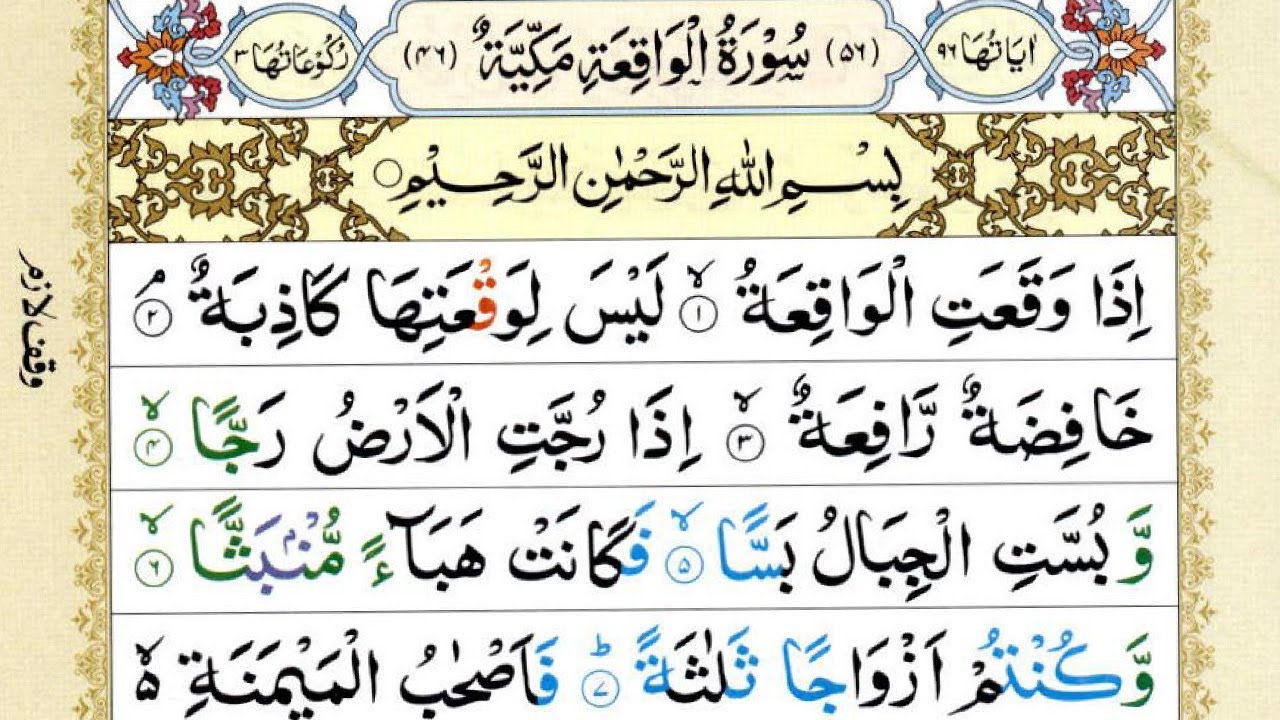 اٰیَاتُهَا ۹۶ (۵۶) سُوْرَةُ الْوَاقِعَةِ مَكِّیَّةٌ (۴۶) رُكُوْعَاتُهَا ۳
بِسْمِ اللّٰهِ الرَّحْمٰنِ الرَّحِیْمِ ○
اِذَا وَقَعَتِ الْوَاقِعَةُ ۙ‏﴿۱﴾ لَیْسَ لِوَقْعَتِهَا كَاذِبَةٌ ۘ‏﴿۲﴾
خَافِضَةٌ رَّافِعَةٌ ۙ‏﴿۳﴾ اِذَا رُجَّتِ الْاَرْضُ رَجًّا ۙ‏﴿۴﴾
وَّ بُسَّتِ الْجِبَالُ بَسًّا ۙ‏﴿۵﴾ فَكَانَتْ هَبَآءً مُّنْۢبَثًّا ۙ‏﴿۶﴾
وَّكُنْتُمْ اَزْوَاجًا ثَلٰثَةً ؕ‏﴿۷﴾ فَاَصْحٰبُ الْمَیْمَنَةِ ۬ۙ
وقف لازم